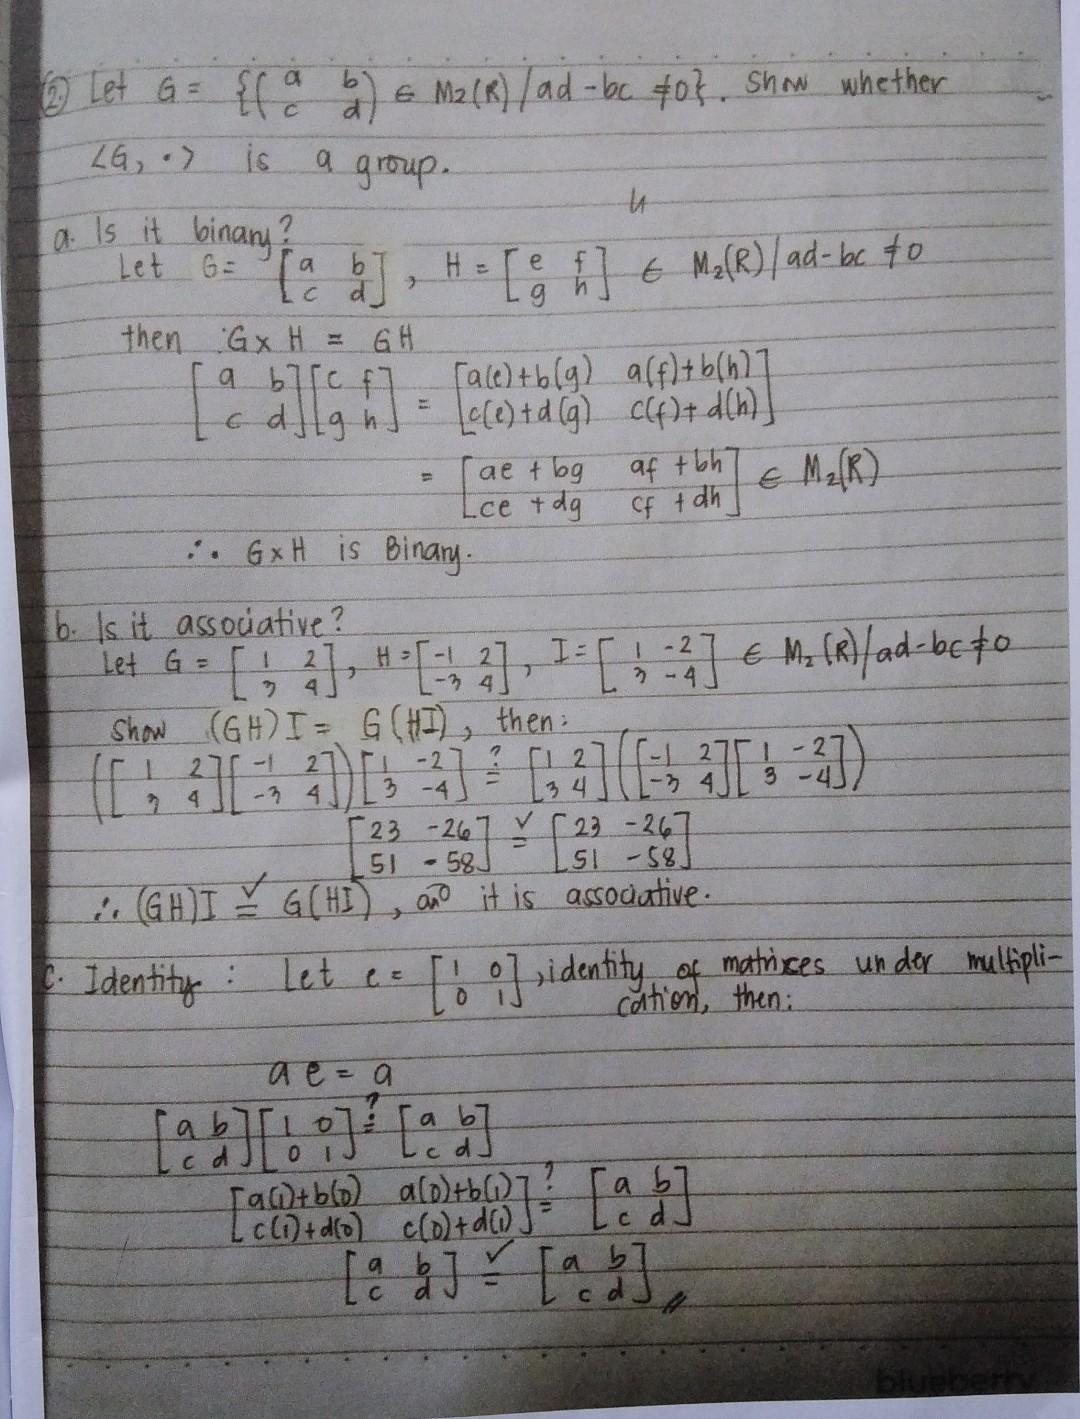 ② Let G = {(a b c d) ∈ M₂(R) / ad - bc ≠ 0}. Show whether
<G, •> is a group.
a. Is it binary?
Let G = [a b c d], H = [e f g h] ∈ M₂(R) | ad - bc ≠ 0
then G x H = GH
[a b c d][c f g h] = [a(e)+b(g) a(f)+b(h) c(e)+d(g) c(f)+d(h)]
= [ae + bg af + bh ce + dg cf + dh] ∈ M₂(R)
∴ G x H is Binary.
b. Is it associative?
Let G = [1 2 3 4], H = [-1 2 -3 4], I = [1 -2 3 -4] ∈ M₂(R) / ad - bc ≠ 0
Show (GH)I = G(HI), then:
([1 2 3 4][-1 2 -3 4])[1 -2 3 -4] ≟ [1 2 3 4]([-1 2 -3 4][1 -2 3 -4])
[23 -26 51 -58] =✓ [23 -26 51 -58]
∴ (GH)I =✓ G(HI), and it is associative.
c. Identity : Let e = [1 0 0 1], identity of matrixes under multipli-
cation, then:
ae = a
[a b c d][1 0 0 1] ≟ [a b c d]
[a(1)+b(0) a(0)+b(1) c(1)+d(0) c(0)+d(1)] ≟ [a b c d]
[a b c d] =✓ [a b c d] //
blueberry